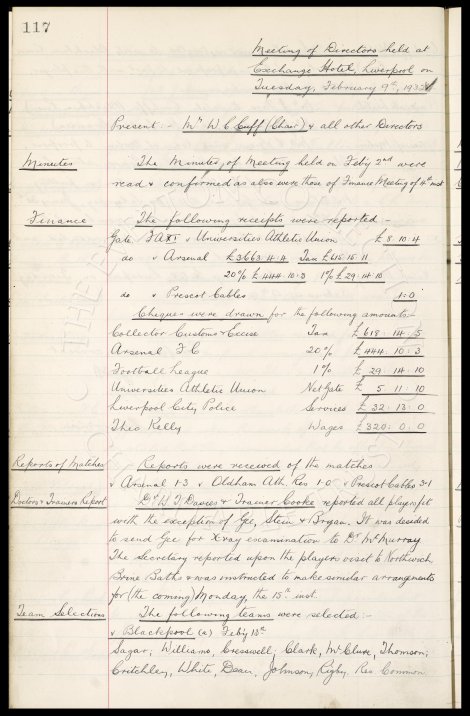 117
Meeting of Directors held at
Exchange Hotel, Liverpool on
Tuesday, February 9th, 1932
Present :- Mr W. C. Cuff (Chair) & all other Directors
Minutes
The Minutes, of Meeting held on Feby 2nd were
read & confirmed as also were those of Finance Meeting of 4th inst
Finance
The following receipts were reported -
Gate "A" XI v Universities Athletic Union £8 : 10 : 4
do v Arsenal £3663 : 4 : 4 Tax £615 : 15 : 11
20% £444 : 10 : 3 1% £29 : 14 : 10
do v Prescot Cables 1 : 0
Cheques were drawn for the following amounts:-
Collector Customs & Excise Tax £618 : 14 : 5
Arsenal F C 20% £444 . 10 : 3
Football League 1% £29 . 14 . 10
Universities Athletic Union Net Gate £5 : 11 : 10
Liverpool City Police Services £32 : 13 : 0
Theo Kelly Wages £320 : 0 : 0
Reports of Matches
Reports were received of the matches
v Arsenal 1-3 v Oldham Ath. Res 1-0 v Prescot Cables 3-1
Doctors & Trainers Report
Dr W. J. Davies & Trainer Cooke reported all players fit
with the exception of Gee, Stein & Bryan. It was decided
to send Gee for Xray examination to Dr McMurray
The Secretary reported upon the players visit to Northwich
Brine Baths & was instructed to make similar arrangements
for (the coming) Monday, the 15th inst.
Team Selections
The following teams were selected :-
v Blackpool (a) Feby 13th
Sagar; Williams, Cresswell; Clark, McClure, Thomson;
Critchley, White, Dean, Johnson, Rigby Res Common